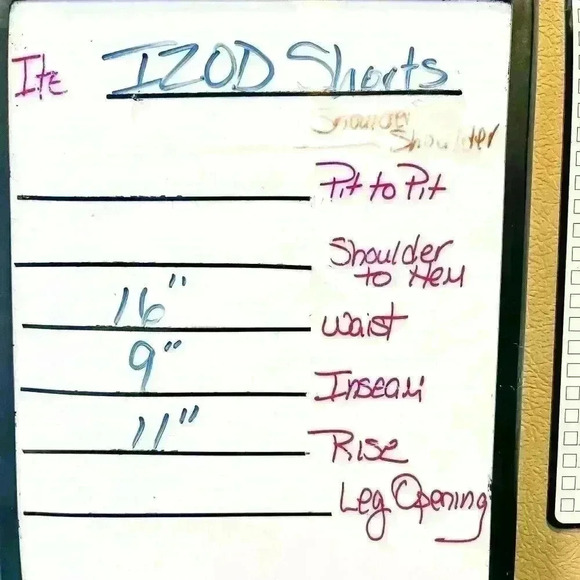 Ite IZOD Shorts
Shoulder
Shoulder
Pit to Pit
Shoulder
to Hem
16" Waist
9" Inseam
11" Rise
Leg Opening